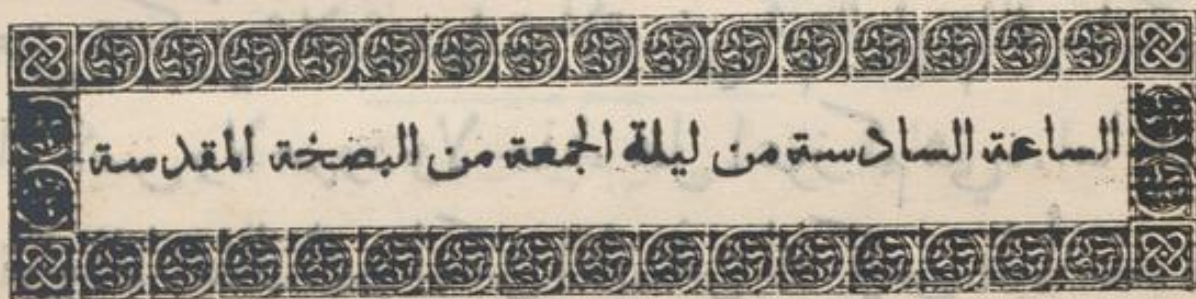 الساعة السادسة من ليلة الجمعة من البصخة المقدسة